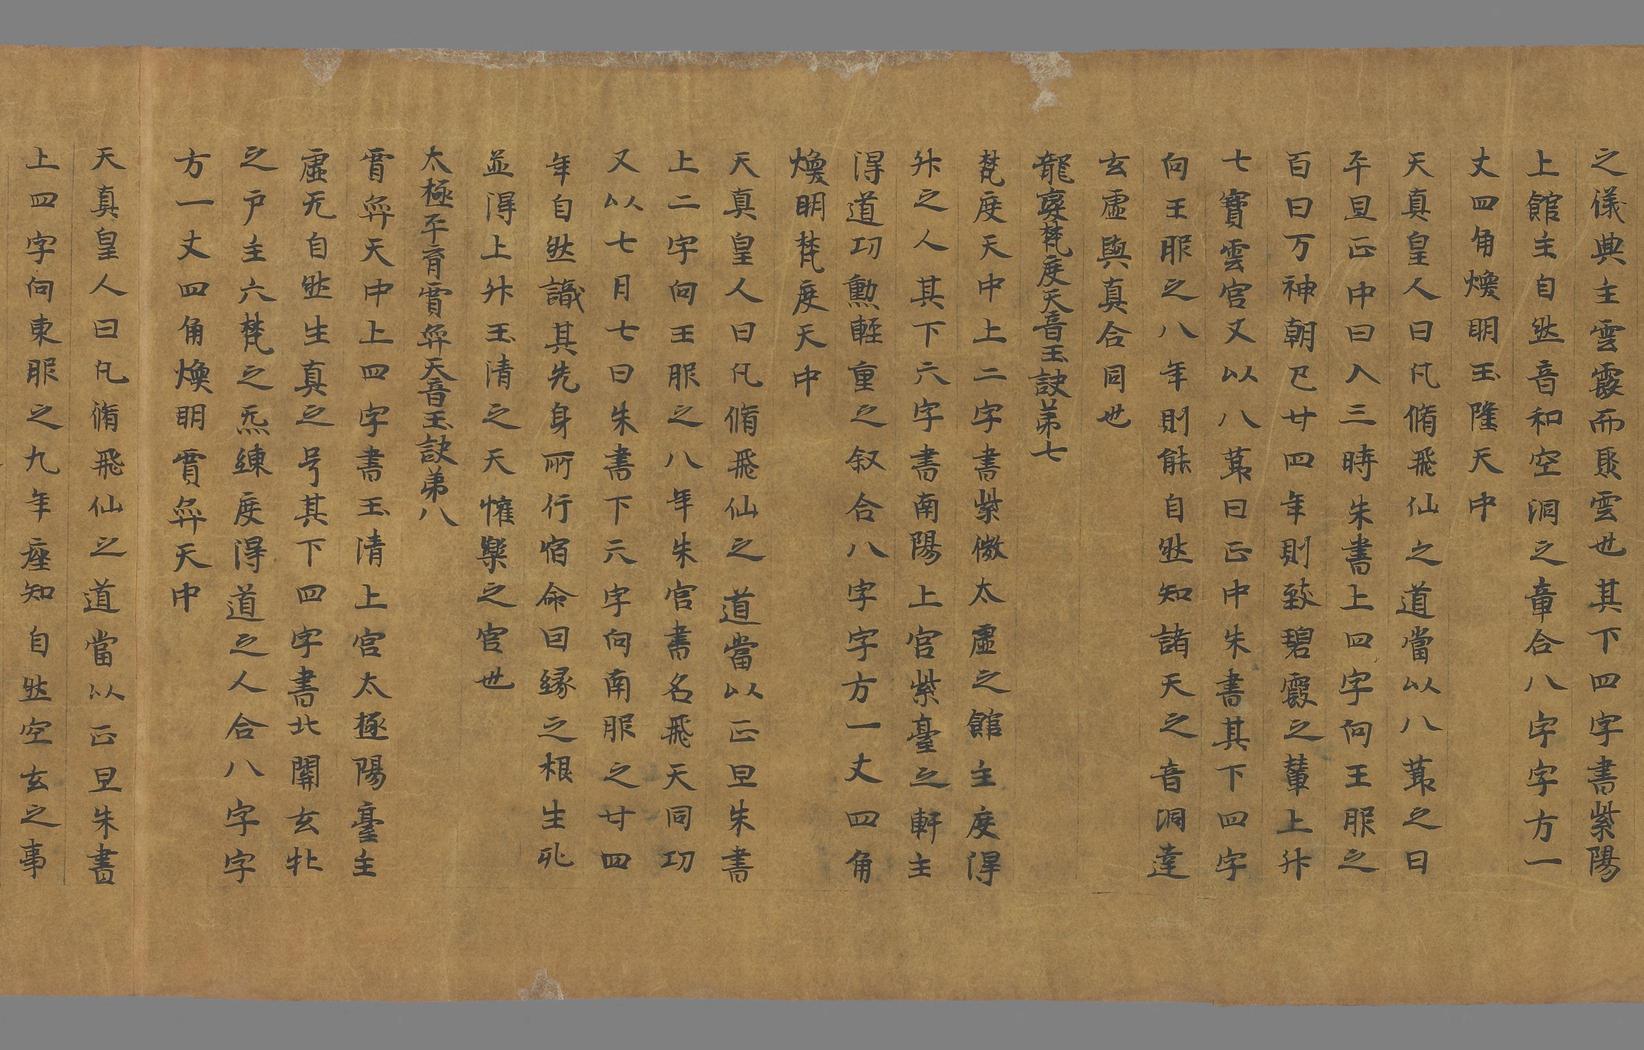 之儀典主雲霞而聚雲也其下四字書紫陽
上館主自然音和空洞之章合八字字方一
丈四角煥明玉隆天中
天真皇人曰凡脩飛仙之道當以八節之日
平旦正中日入三時朱書上四字向王服之
百日万神朝已廿四年則致碧霞之輦上升
七寶雲宮又以八節日正中朱書其下四字
向王服之八年則能自然知諸天之音洞達
玄虛與真合同也
龍變梵度天音玉訣弟七
梵度天中上二字書紫微太虛之館主度得
升之人其下六字書南陽上宮紫臺之軒主
得道功勳輕重之叙合八字字方一丈四角
煥明梵度天中
天真皇人曰凡脩飛仙之道當以正旦朱書
上二字向王服之八年朱宮書名飛天同功
又以七月七日朱書下六字向南服之廿四
年自然識其先身所行宿命曰緣之根生死
並得上升玉清之天懽樂之宮也
太極平育賈弈天音玉訣弟八
賈弈天中上四字書玉清上宮太極陽臺主
虛无自然生真之号其下四字書北闕玄牝
之戶主六梵之炁練度得道之人合八字字
方一丈四角煥明賈弈天中
天真皇人曰凡脩飛仙之道當以正旦朱書
上四字向東服之九年座知自然空玄之事